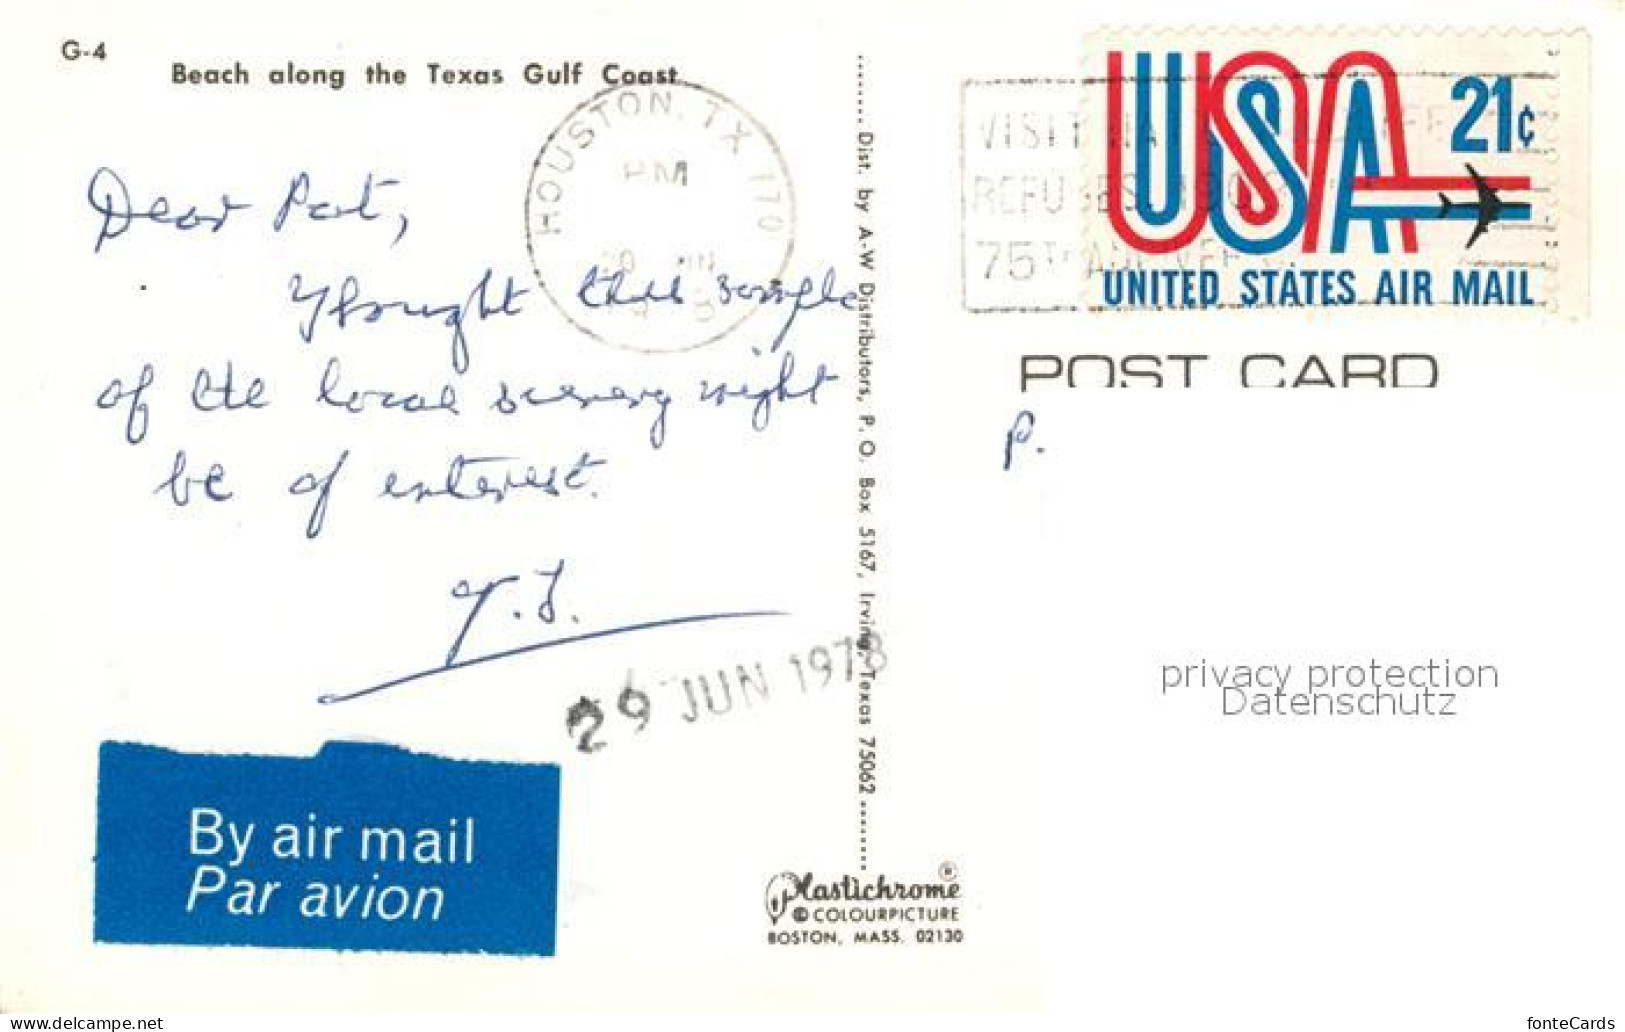 G-4
Beach along the Texas Gulf Coast
HOUSTON, TX 770
PM
USA 21¢
UNITED STATES AIR MAIL
VISIT
75
POST CARD
Dear Pat,
Thought this sample
of the local scenery might
be of interest.
P.
29 JUN 1978
Dist. by A-W Distributors, P. O. Box 5167, Irving, Texas 75062
By air mail
Par avion
Plastichrome ®
© COLOURPICTURE
BOSTON, MASS. 02130
privacy protection
Datenschutz
delcampe.net
fonteCards